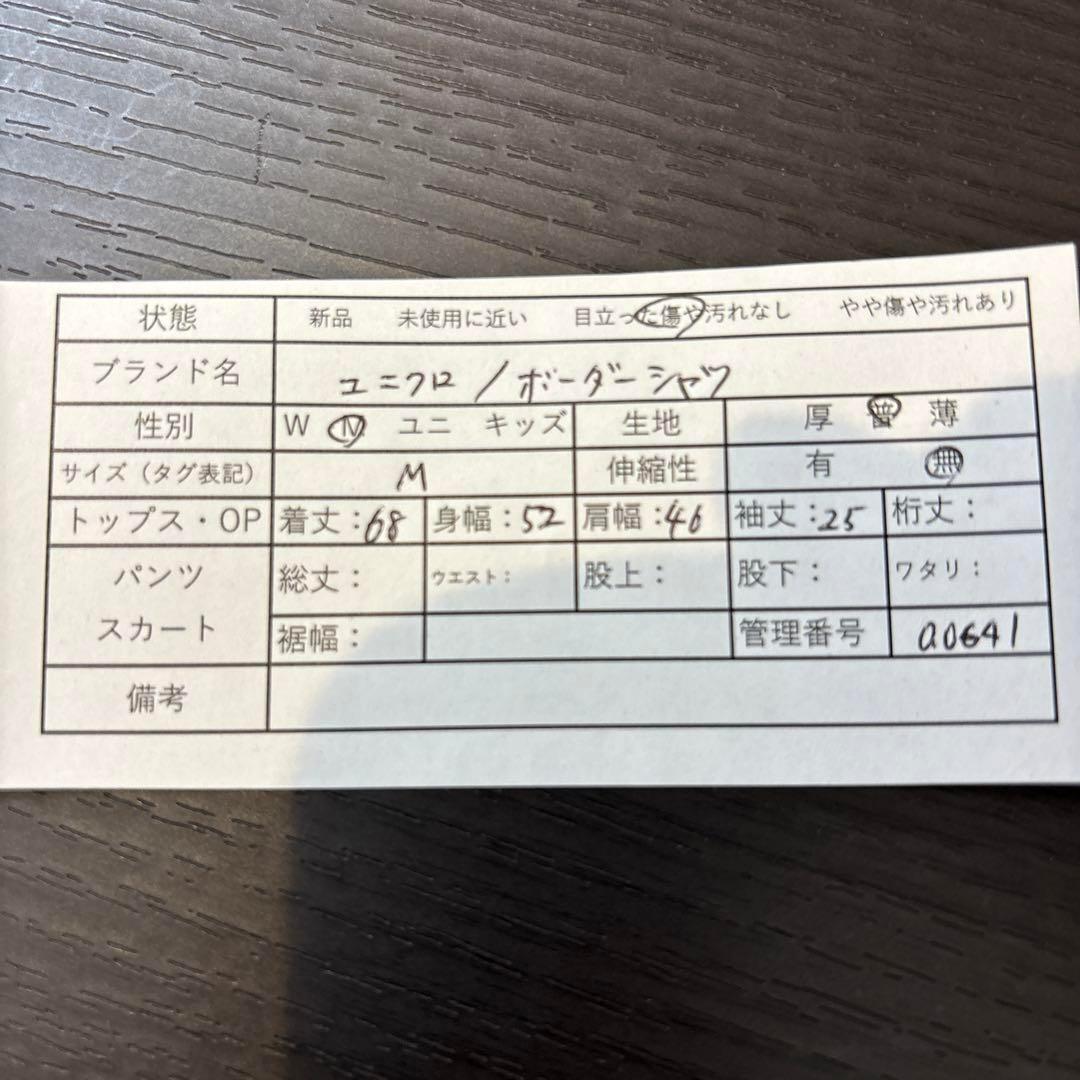 状態 新品 未使用に近い 目立った傷や汚れなし やや傷や汚れあり
ブランド名 ユニクロ / ボーダーシャツ
性別 W M ユニ キッズ 生地 厚 普 薄
サイズ（タグ表記） M 伸縮性 有 無
トップス・OP 着丈：68 身幅：52 肩幅：46 袖丈：25 桁丈：
パンツ 総丈： ウエスト： 股上： 股下： ワタリ：
スカート 裾幅： 管理番号 a0641
備考